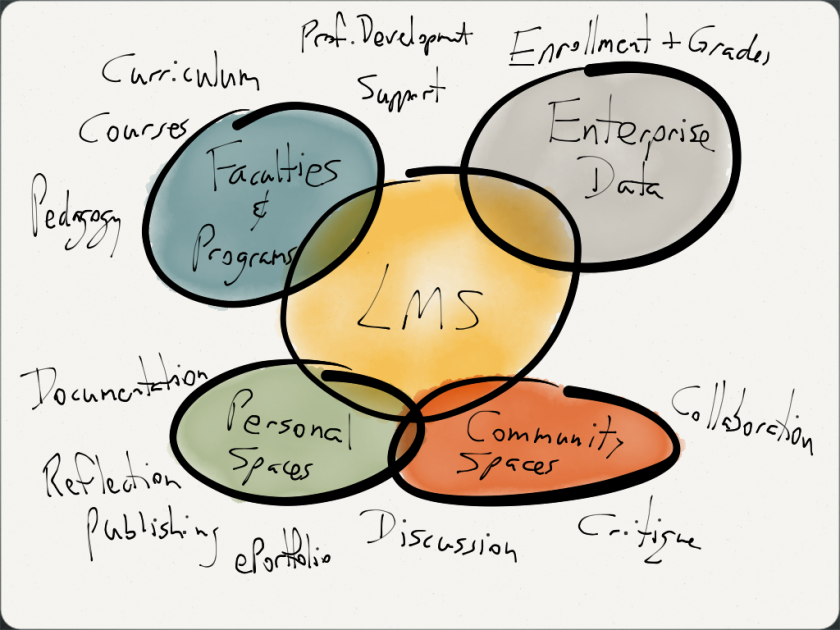 Prof. Development
Support
Enrollment + Grades
Curriculum
Courses
Pedagogy
Faculties
&
Programs
Enterprise
Data
LMS
Documentation
Personal
Spaces
Community
Spaces
Collaboration
Reflection
Publishing
ePortfolio
Discussion
Critique